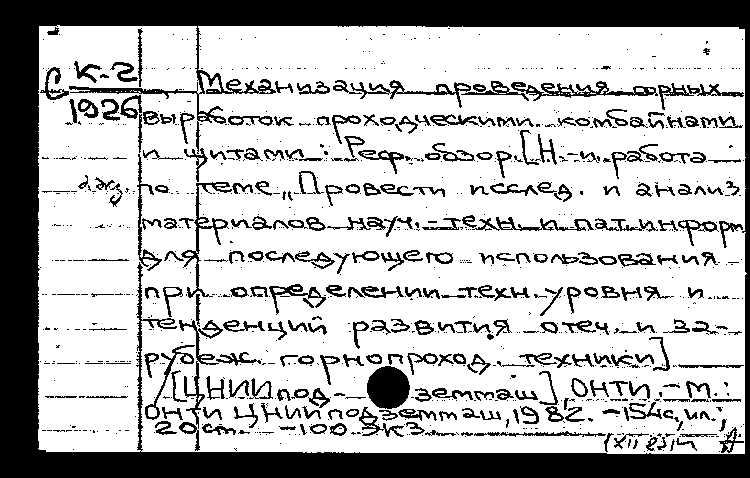 С К-2
1926
Механизация проведения горных
выработок проходческими комбайнами
и щитами: Реф. обзор. [Н.-и. работа
2 экз. по теме „Провести исслед. и анализ
материалов науч.-техн. и пат. информ
для последующего использования
при определении техн. уровня и
тенденций развития отеч. и за-
рубеж. горнопроход. техники]
[ЦНИИпод-земмаш], ОНТИ.-М.:
ОНТИ ЦНИИподземмаш, 1982. -154с, ил.;
20 см. -100 экз.